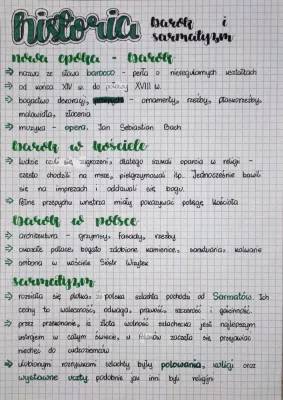 historia barok i
sarmatyzm
nowa epoka - barok
⇒ nazwa ze słowa barocco - perła o nieregularnych kształtach
⇒ od końca XIV w. do połowy XVIII w.
⇒ bogactwo dekoracji, - ornamenty, rzeźby, płaskorzeźby,
malowidła, złocenia
⇒ muzyka - opera, Jan Sebastian Bach
barok w kościele
⇒ ludzie czuli się zagrożeni, dlatego szukali oparcia w religii -
często chodzili na msze, pielgrzymowali itp. Jednocześnie bawili
się na imprezach i oddawali się bogu.
⇒ pełne przepychu wnętrza miały pokazywać potęgę kościoła
barok w polsce
⇒ architektura - grzymsy, fasady, rzeźby
⇒ okazałe pałace, bogato zdobione kamienice, sanktuaria, kalwarie
⇒ ambona w kościele Sióstr Wizytek
sarmatyzm
⇒ rozeszła się plotka: polska szlachta pochodzi od Sarmatów. Ich
cechy to waleczność, odwaga, prawość, szczerość i gościnność.
⇒ przez przekonanie, iż złota wolność szlachecka jest najlepszym
ustrojem w całym świecie, u Polaków zaczęła się przejawiać
niechęć do cudzoziemców
⇒ ulubionymi rozrywkami szlachty były polowania, kuligi oraz
wystawne uczty, podobnie jak inni byli religijni